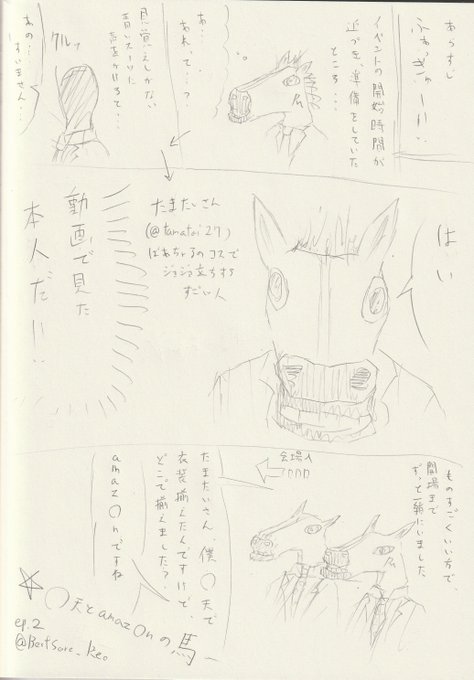 あらすじ
イベントの開始時間が
近づき、準備をしていた
ところ...
あ...
あれって...?
見覚えしかない
青いスーツいた
声をかけて...
クルッ
あの...
すいません...
はい
たまたいさん
(@tamatai27)
ばあちゃるのコスで
ジョジョ立ちする
すごい人
動画で見た
本人だ!!!
ものすごくいい方で、
開場まで
ずっと一緒にいました
会場入口
たまたいさん、僕〇天で
衣装揃えたんですけど、
どこで揃えました?
amaz〇nですね
☆〇天とamaz〇nの馬
ep.2